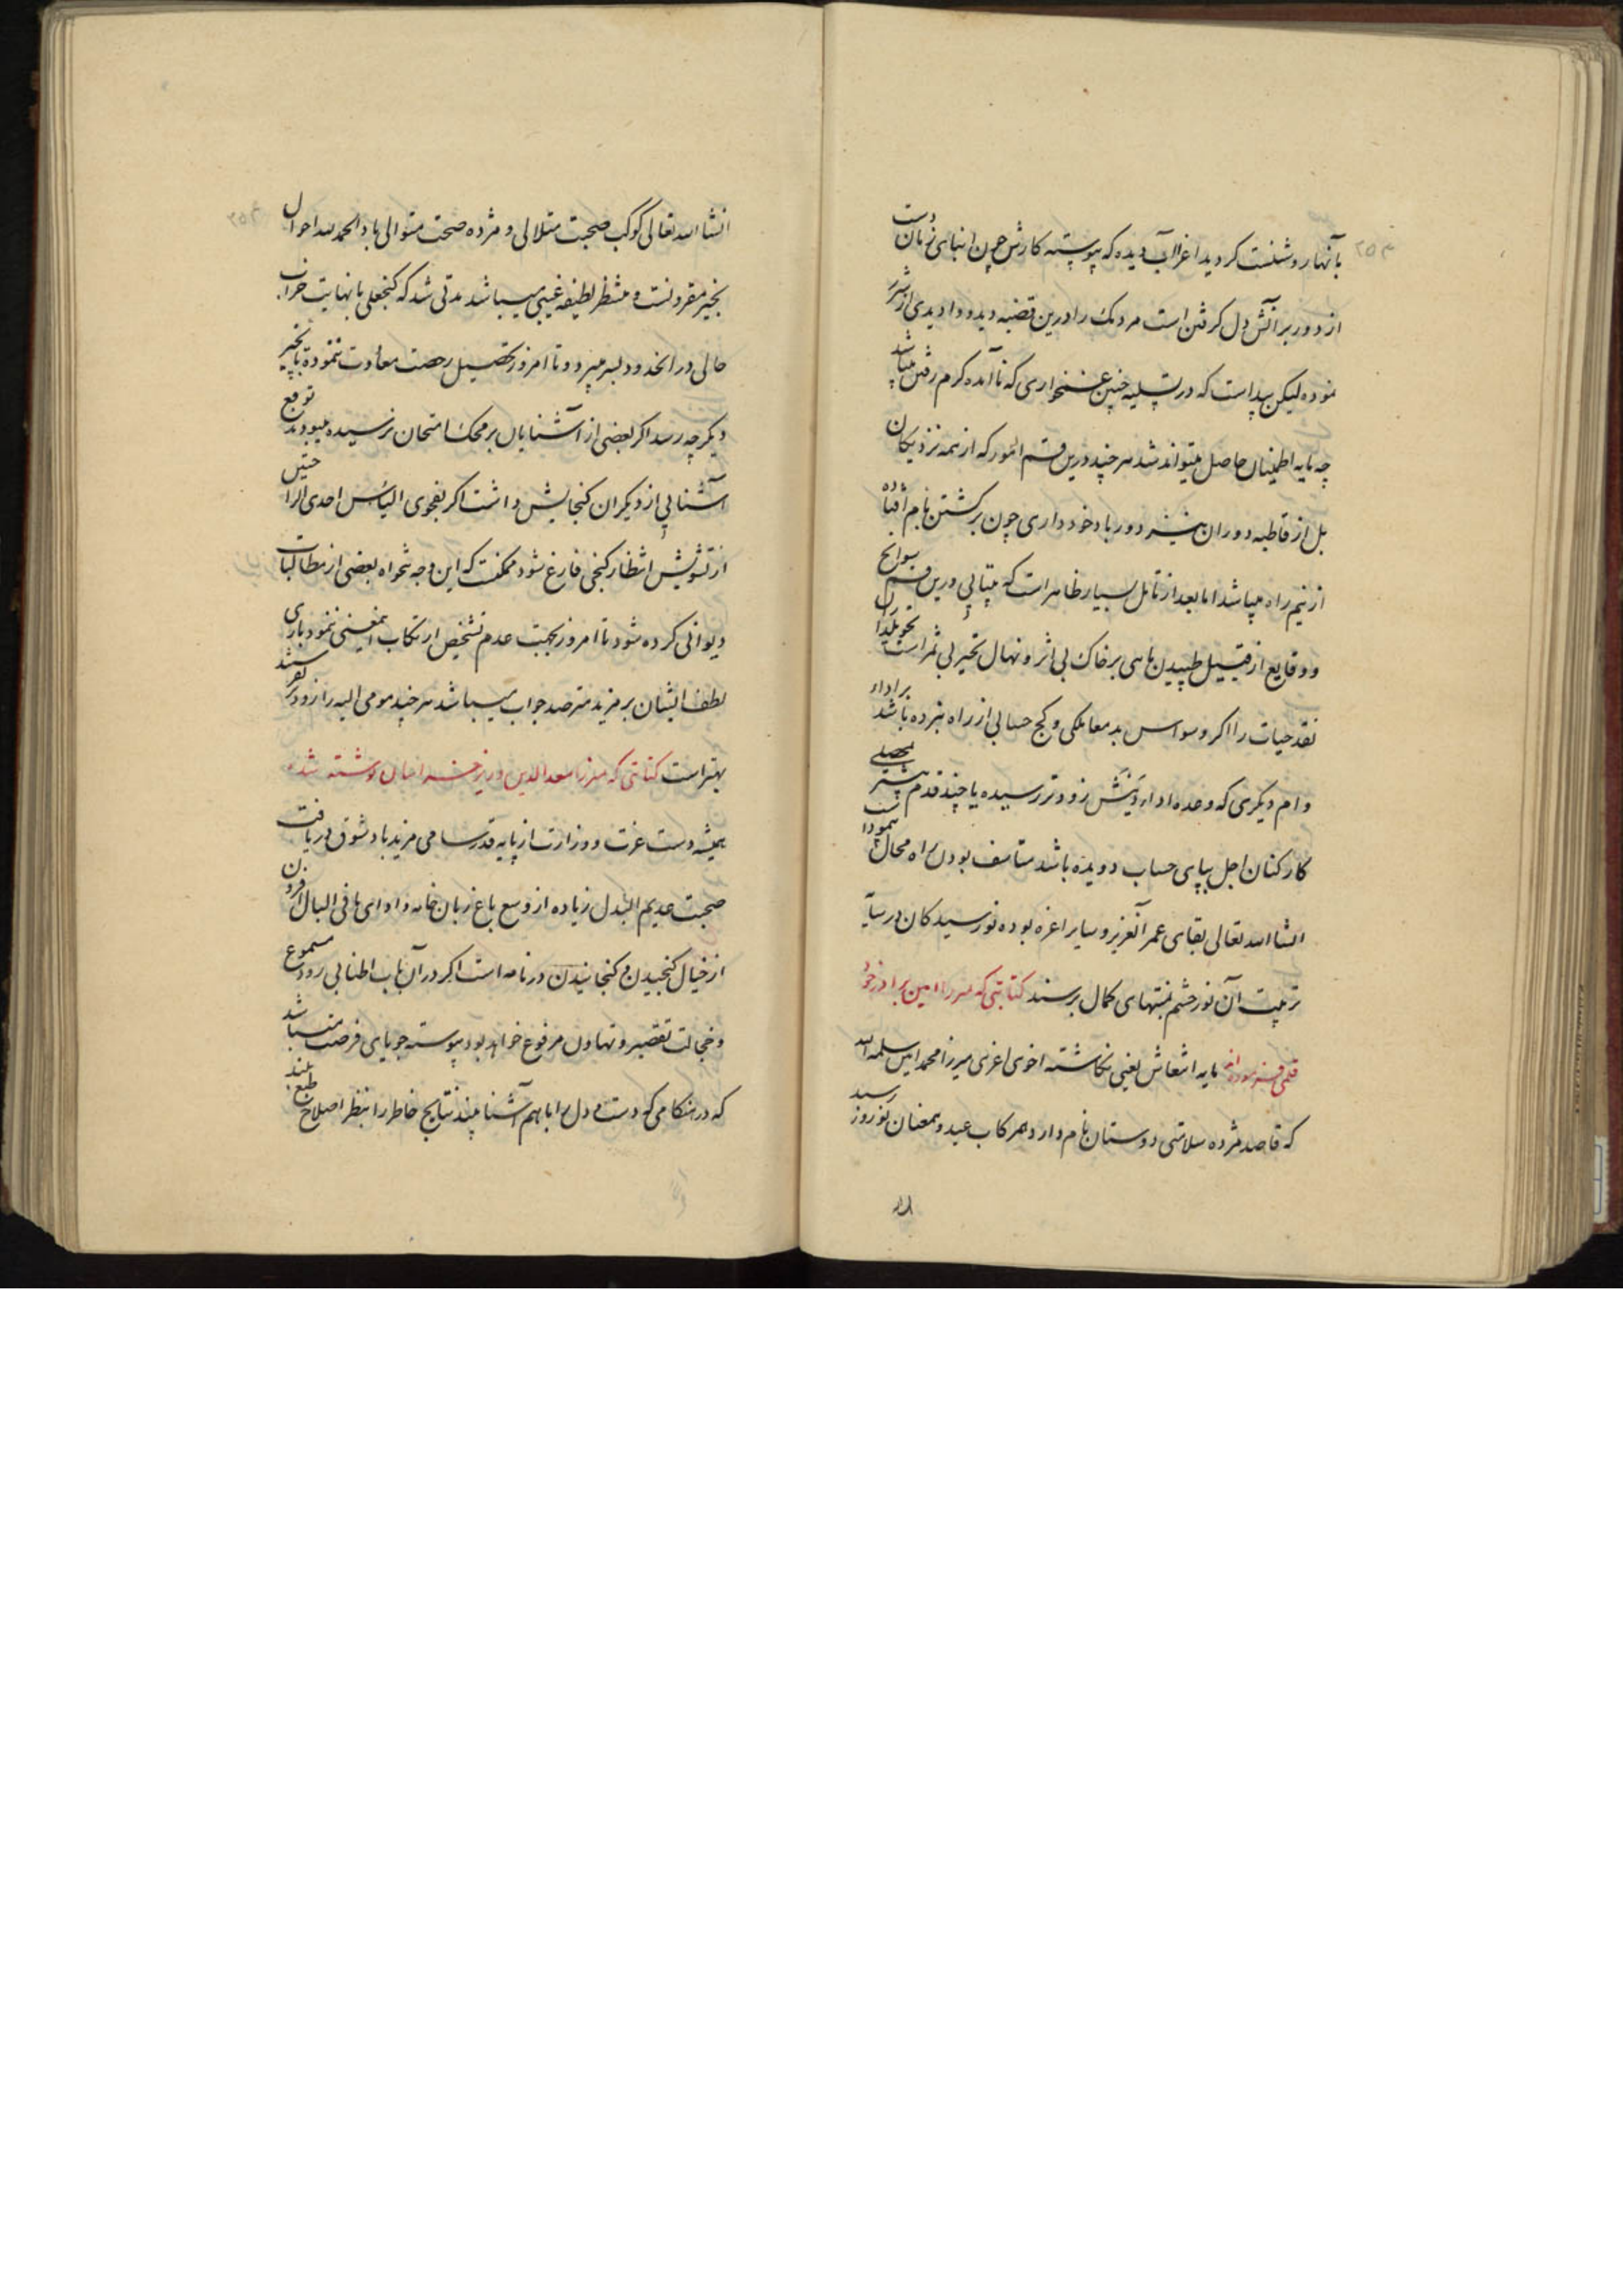 بآنها روشنست کردید اغر اآب دیده که پیوسته کارش چون ابنای زمان دست
از دور بر آتش دل کرفتن است مردمک را درین قضیه دید و وادیدی از شرر
نموده لیکن پیداست که در تسلیه چنین غمخواری که نآمده کرم رفتن میباشد
چه مایه اطمینان حاصل میتواند شد هر چند درین قسم امور که از همه نزدیکان
بل از قاطبه دوران میسر دور باد خودداری چون برکشتن بام افتاده
از نیم راه میباشد اما بعد از تامل بسیار ظاهر است که بیتابی درین قسم سوانح
و وقایع از قبیل طپیدن ماهی بر خاک بی اثر و نهال تحیر بی ثمر است تحویلدار
نقد حیات را اکر وسواس بد معاملکی و کج حسابی از راه نبرده باشد بر اداء
وام دیکری که وعده ادا زودتر رسیده یا چند قدم پیشتر محصلی
کارکنان اجل بپای حساب دویده باشد متاسف بودن راه محال پیمودنست
انشاالله تعالی بقای عمر آنعزیز و سایر اعزه بوده نورسیدکان در سایه
تربیت آن نور چشم بمنتهای کمال برسند کتابتی که میرزا امین برادر خود
قلمی فرموده اند مایه انتعاش یعنی نکاشته اخوی اعزی میرزا محمد امین سلمه الله
که قاصد مژده سلامتی دوستان نام دارد همرکاب عید و همعنان نوروز رسید
انشاالله تعالی کوکب صحبت متلالی و مژده صحت متوالی باد الحمدلله احوال
بخیر مقرونست و منتظر لطیفه غیبی میباشد مدتی شد که کنجعلی با نهایت خراب
حالی در انحدود بسر میبرد و تا امروز تحصیل رخصت معاودت ننموده تا بچیز
دیکر چه رسد اکر بعضی از آشنایان بر محک امتحان نرسیده میبودند توقع
آشنایی از دیکران کنجایش داشت اکر بفحوی الیاس احدی الراحتین
از تشویش انتظار کنجی فارغ شود ممکنست که این وجه تنخواه بعضی از مطالبات
دیوانی کرده شود تا امروز بجهت عدم تشخیص ارتکاب اینمعنی ننمود باری
لطف ایشان بر مزید مترصد جواب میباشد هر چند مومی الیه را زودتر بفرستند
بهتر است کتابتی که میرزا سعدالدین وزیر خراسان نوشته شد
همیشه دست عزت و وزارت از پایه قدر سامی مزید باد شوق دریافت
صحبت عدیم البدل زیاده از وسع باغ زبان خامه و ادای مافی البال افزون
از خیال کنجیدن و کنجانیدن در نامه است اکر در آن باب اطنابی رود مسموع
و خجالت تقصیر و تهاون مرفوع خواهد بود پیوسته جویای فرصت میباشد
که در هنکامی که دست و دل را با هم آشنا بیند نتایج خاطر را بنظر اصلاح طبع بلند